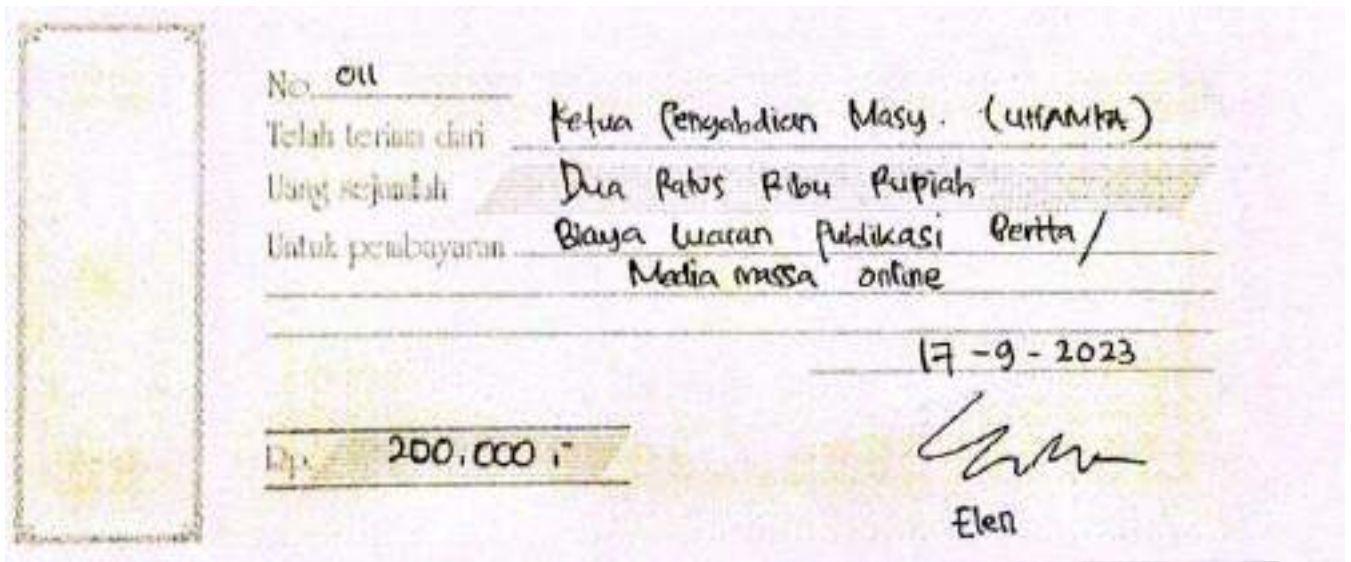 No. 011
Telah terima dari Ketua Pengabdian Masy. (UHAMKA)
Uang sejumlah Dua Ratus Ribu Rupiah
Untuk pembayaran Biaya Luaran Publikasi Berita/
Media massa online
17-9-2023
Rp. 200.000,-
Elen